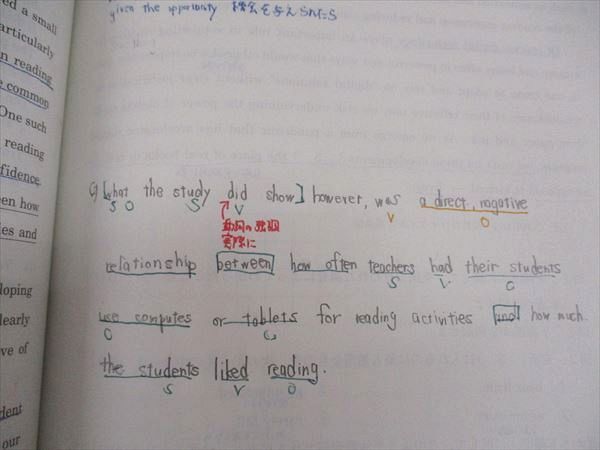 ed a small
articularly
n reading
e common
One such
reading
fidence.
en how
ies and
loping
learly
ve of
dent
our
given the opportunity 機会を与えられたら
[what the study did show] however, was a direct, nagative
S O S V V O
動詞の強調
実際に
relationship between how often teachers had their students
S V O
use computes or tablets for reading activities and how much
O
the students liked reading.
S V O